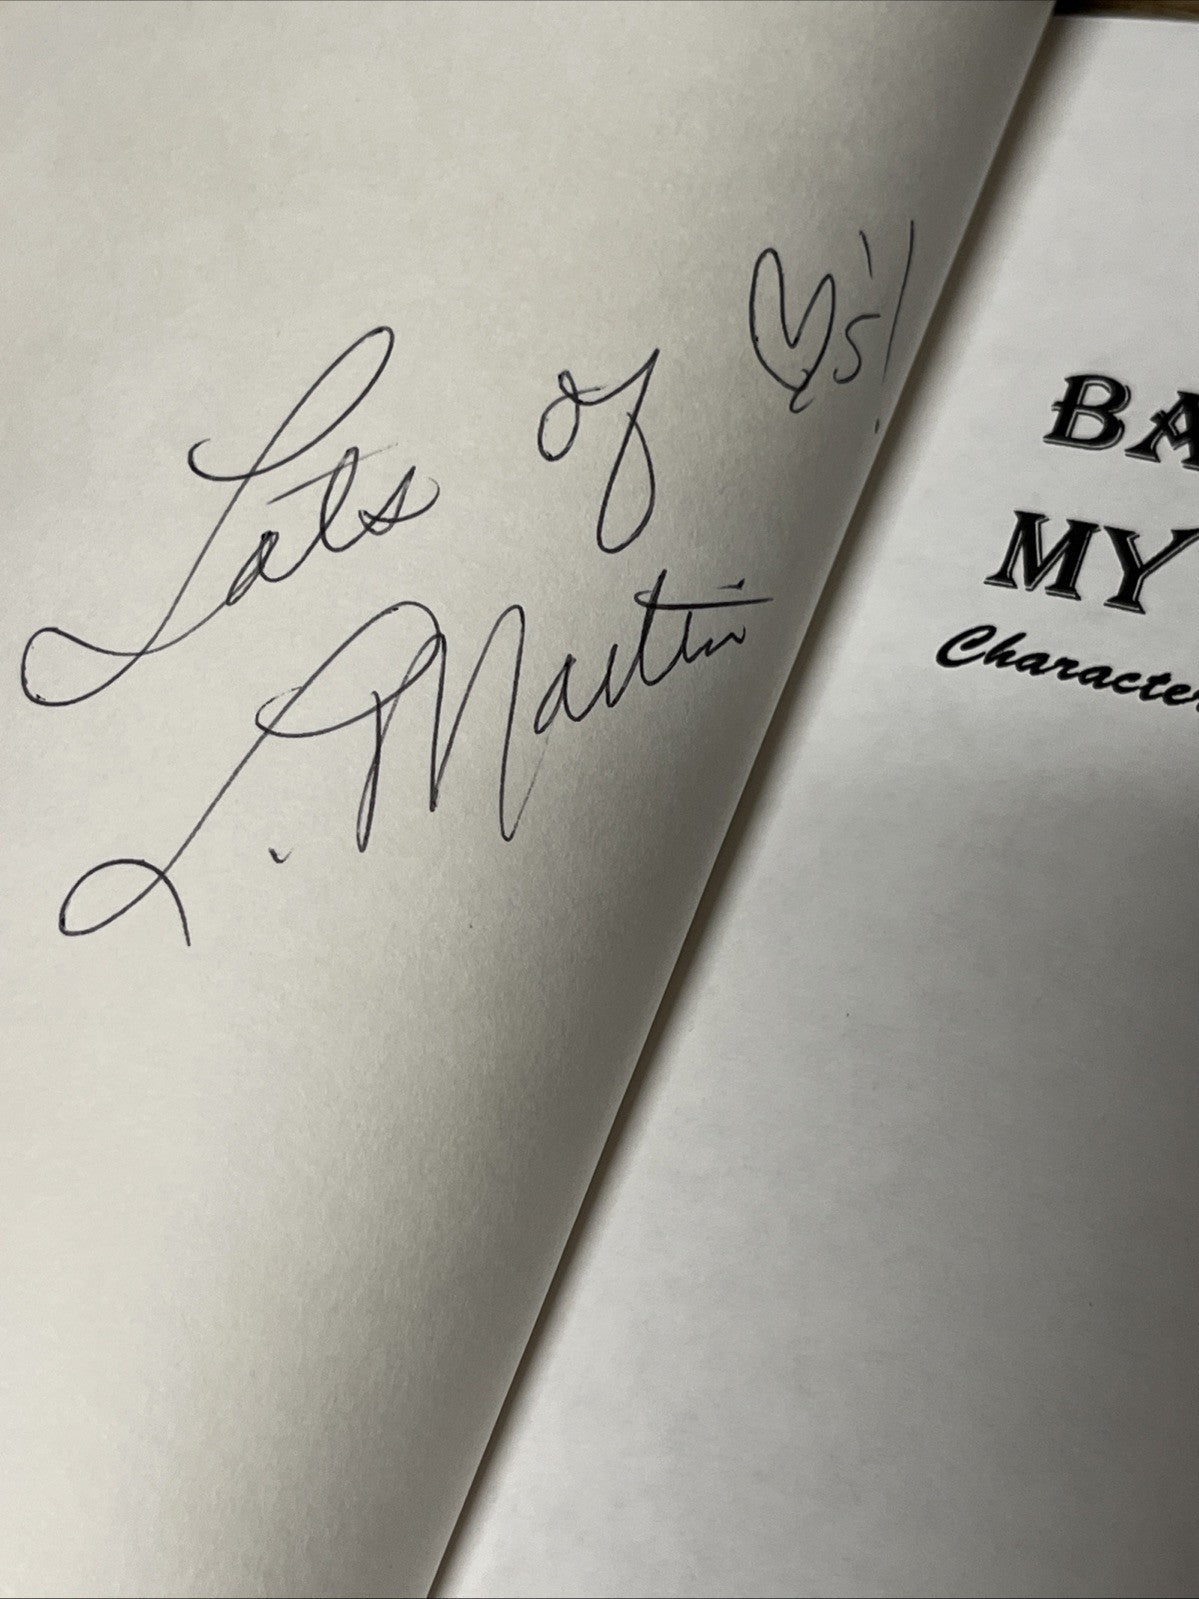 Lots of ♡s!!
L. Martin
BA
MY
Character